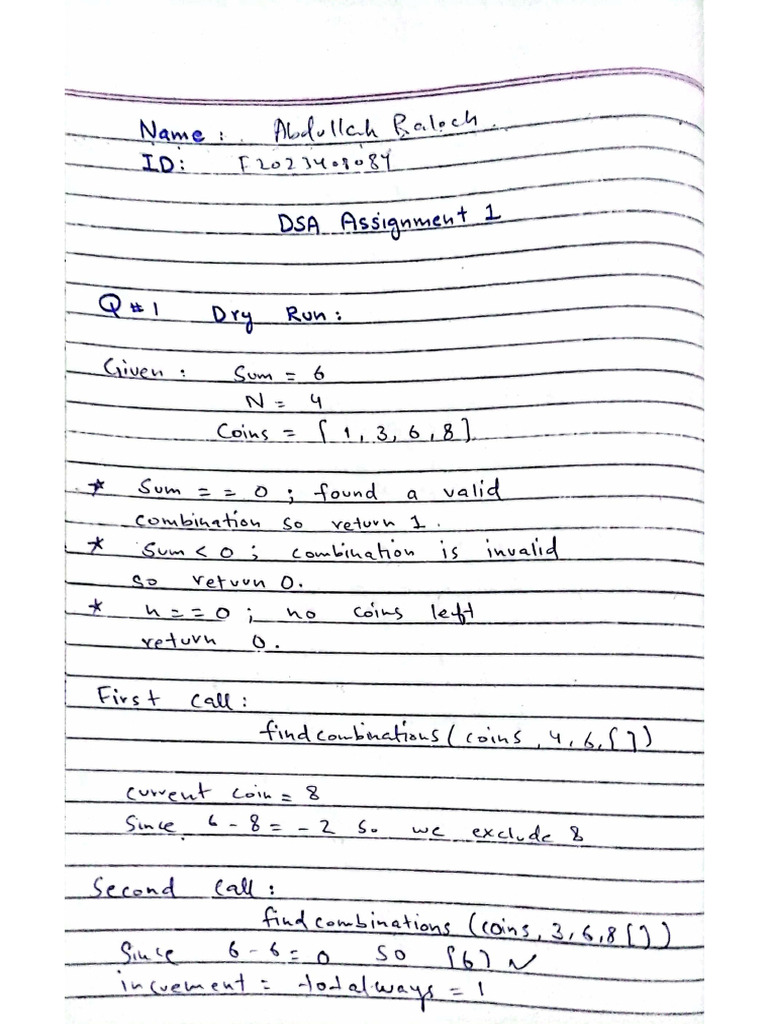 Name : Abdullah Baloch
ID: F2023408084
DSA Assignment 1
Q#1 Dry Run :
Given : Sum = 6
N = 4
Coins = [ 1, 3, 6, 8]
* Sum = = 0 ; found a valid
combination so return 1.
* Sum < 0 ; combination is invalid
so return 0.
* n = = 0 ; no coins left
return 0.
First call :
findcombinations( coins , 4, 6, [ ])
current coin = 8
Since 6 - 8 = - 2 So we exclude 8
Second call :
findcombinations (coins, 3, 6, 8 [ ])
Since 6 - 6 = 0 so [6]
increment = totalways = 1